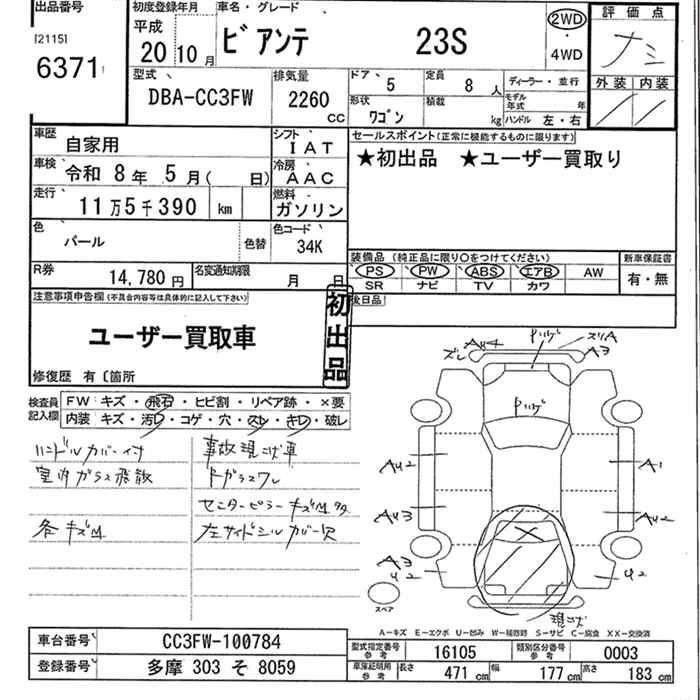 出品番号
[2115]
6371
初度登録年月
平成
20年10月
車名・グレード
ビアンテ 23S
2WD
・
4WD
評価点
ナシ
外装 内装
型式
DBA-CC3FW
排気量
2260
CC
ドア 5
定員 8 人
形状
ワゴン
積載 kg
ディーラー・並行
モデル年式 年
ハンドル 左・右
車歴
自家用
シフト
IAT
車検
令和 8年 5月( 日)
冷房
AAC
走行
11万5千390 km
燃料
ガソリン
色
パール
色替
色コード
34K
R券
14,780円
名変通知期限
月 日
セールスポイント(正常に機能するものに限ります)
★初出品 ★ユーザー買取り
装備品 (純正品に限り○をつけてください)
PS PW ABS エアB AW
SR ナビ TV カワ
新車保証書
有・無
後日品
注意事項申告欄(不具合内容等は具体的に記入して下さい)
ユーザー買取車
初出品
修復歴 有〔箇所
検査員
記入欄
FW キズ・飛石・ヒビ割・リペア跡・✕要
内装 キズ・汚レ・コゲ・穴・スレ・キレ・破レ
ハンドルカバー付
室内ガラス飛散
各キズM
事故現状車
ドガラスワレ
センターピラーキズM多
左サイドシルカバー欠
AU4
ズレ
Pハゲ
ズリA
A3
Pハゲ
AU2
A1
AU3
AU2
A3
U2
U2
現状
スペア
A―キズ E―エクボ U―凹み W―補修跡 S―サビ C―腐食 XX―交換済
車台番号
CC3FW-100784
登録番号
多摩 303 そ 8059
型式指定番号
参考
16105
類別区分番号
参考
0003
車庫証明用
参考
長さ 471 cm
幅 177 cm
高さ 183 cm